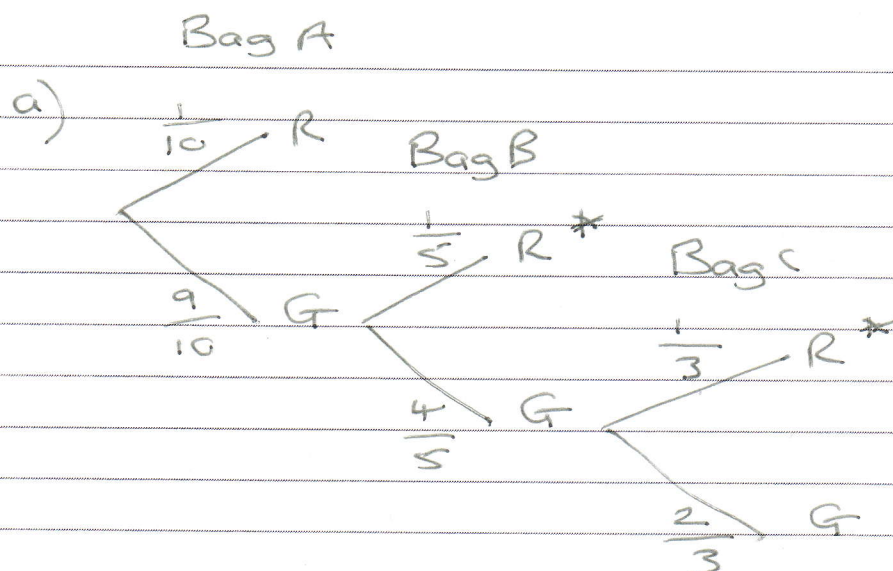 Bag A
a)
1/10 R
Bag B
1/5 R *
Bag C
9/10 G
1/3 R *
4/5 G
2/3 G